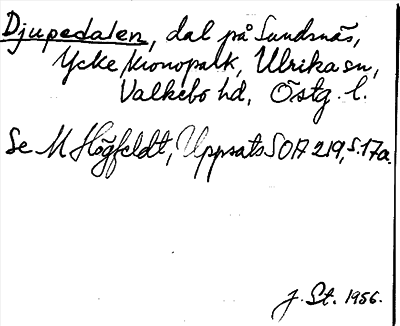 Djupedalen, dal på Sundsnäs,
Ycke kronopark, Ulrika sn,
Valkebo hd, Östg. l.
Se M Högfeldt, Uppsats SOA 219, s. 17a.
J. St. 1956.